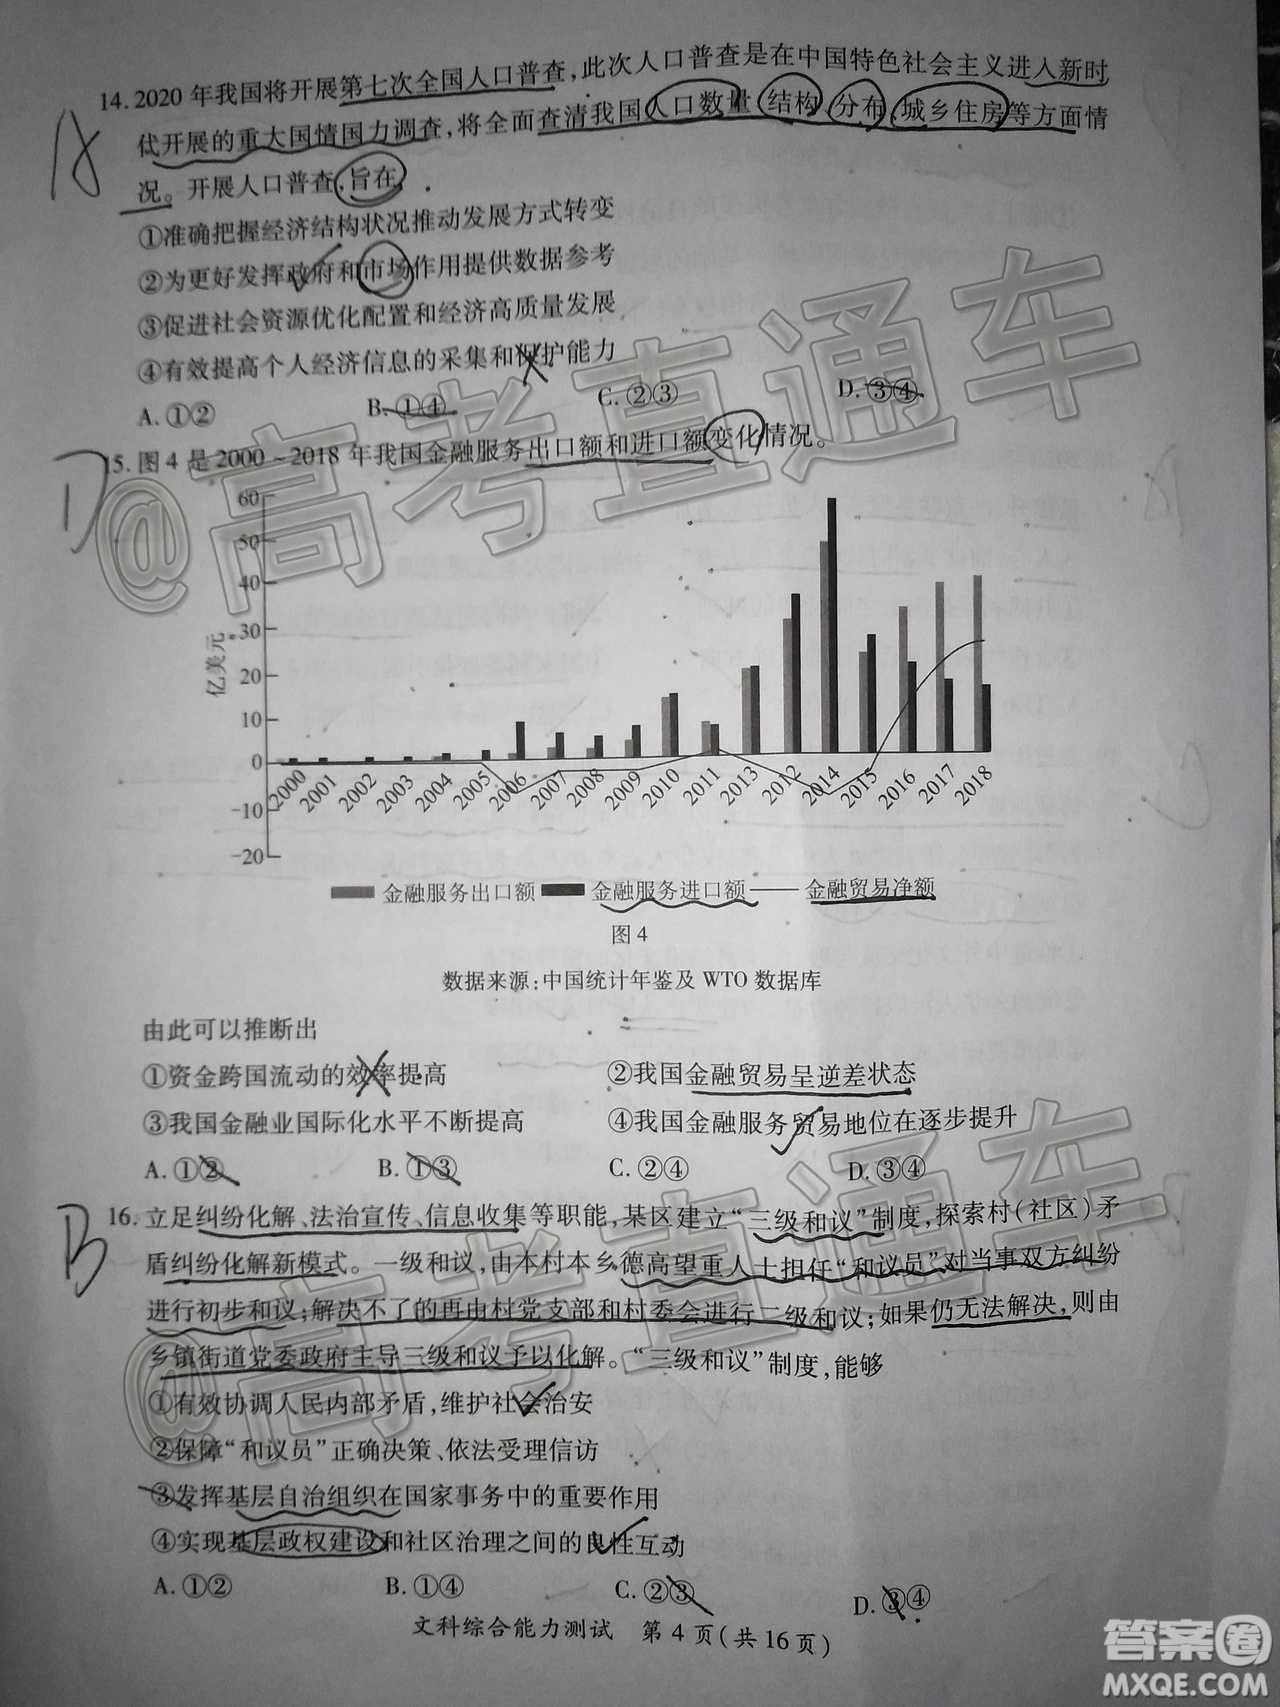 14. 2020 年我国将开展第七次全国人口普查,此次人口普查是在中国特色社会主义进入新时
代开展的重大国情国力调查,将全面查清我国人口数量、结构、分布、城乡住房等方面情
况。开展人口普查,旨在
①准确把握经济结构状况推动发展方式转变
②为更好发挥政府和市场作用提供数据参考
③促进社会资源优化配置和经济高质量发展
④有效提高个人经济信息的采集和保护能力
A. ①② B. ①④ C. ②③ D. ③④
D
15. 图 4 是 2000~2018 年我国金融服务出口额和进口额变化情况。
60
50
40
30
20
10
0
-10
-20
亿美元
2000 2001 2002 2003 2004 2005 2006 2007 2008 2009 2010 2011 2013 2012 2014 2015 2016 2017 2018
金融服务出口额 金融服务进口额 金融贸易净额
图 4
数据来源:中国统计年鉴及 WTO 数据库
由此可以推断出
①资金跨国流动的效率提高 ②我国金融贸易呈逆差状态
③我国金融业国际化水平不断提高 ④我国金融服务贸易地位在逐步提升
A. ①② B. ①③ C. ②④ D. ③④
B
16. 立足纠纷化解、法治宣传、信息收集等职能,某区建立“三级和议”制度,探索村(社区)矛
盾纠纷化解新模式。一级和议,由本村本乡德高望重人士担任“和议员”对当事双方纠纷
进行初步和议;解决不了的再由村党支部和村委会进行二级和议;如果仍无法解决,则由
乡镇街道党委政府主导三级和议予以化解。“三级和议”制度,能够
①有效协调人民内部矛盾,维护社会治安
②保障“和议员”正确决策、依法受理信访
③发挥基层自治组织在国家事务中的重要作用
④实现基层政权建设和社区治理之间的良性互动
A. ①② B. ①④ C. ②③ D. ③④
文科综合能力测试 第 4 页(共 16 页)
@高考直通车
@高考直通车
答案圈
MXQE.COM